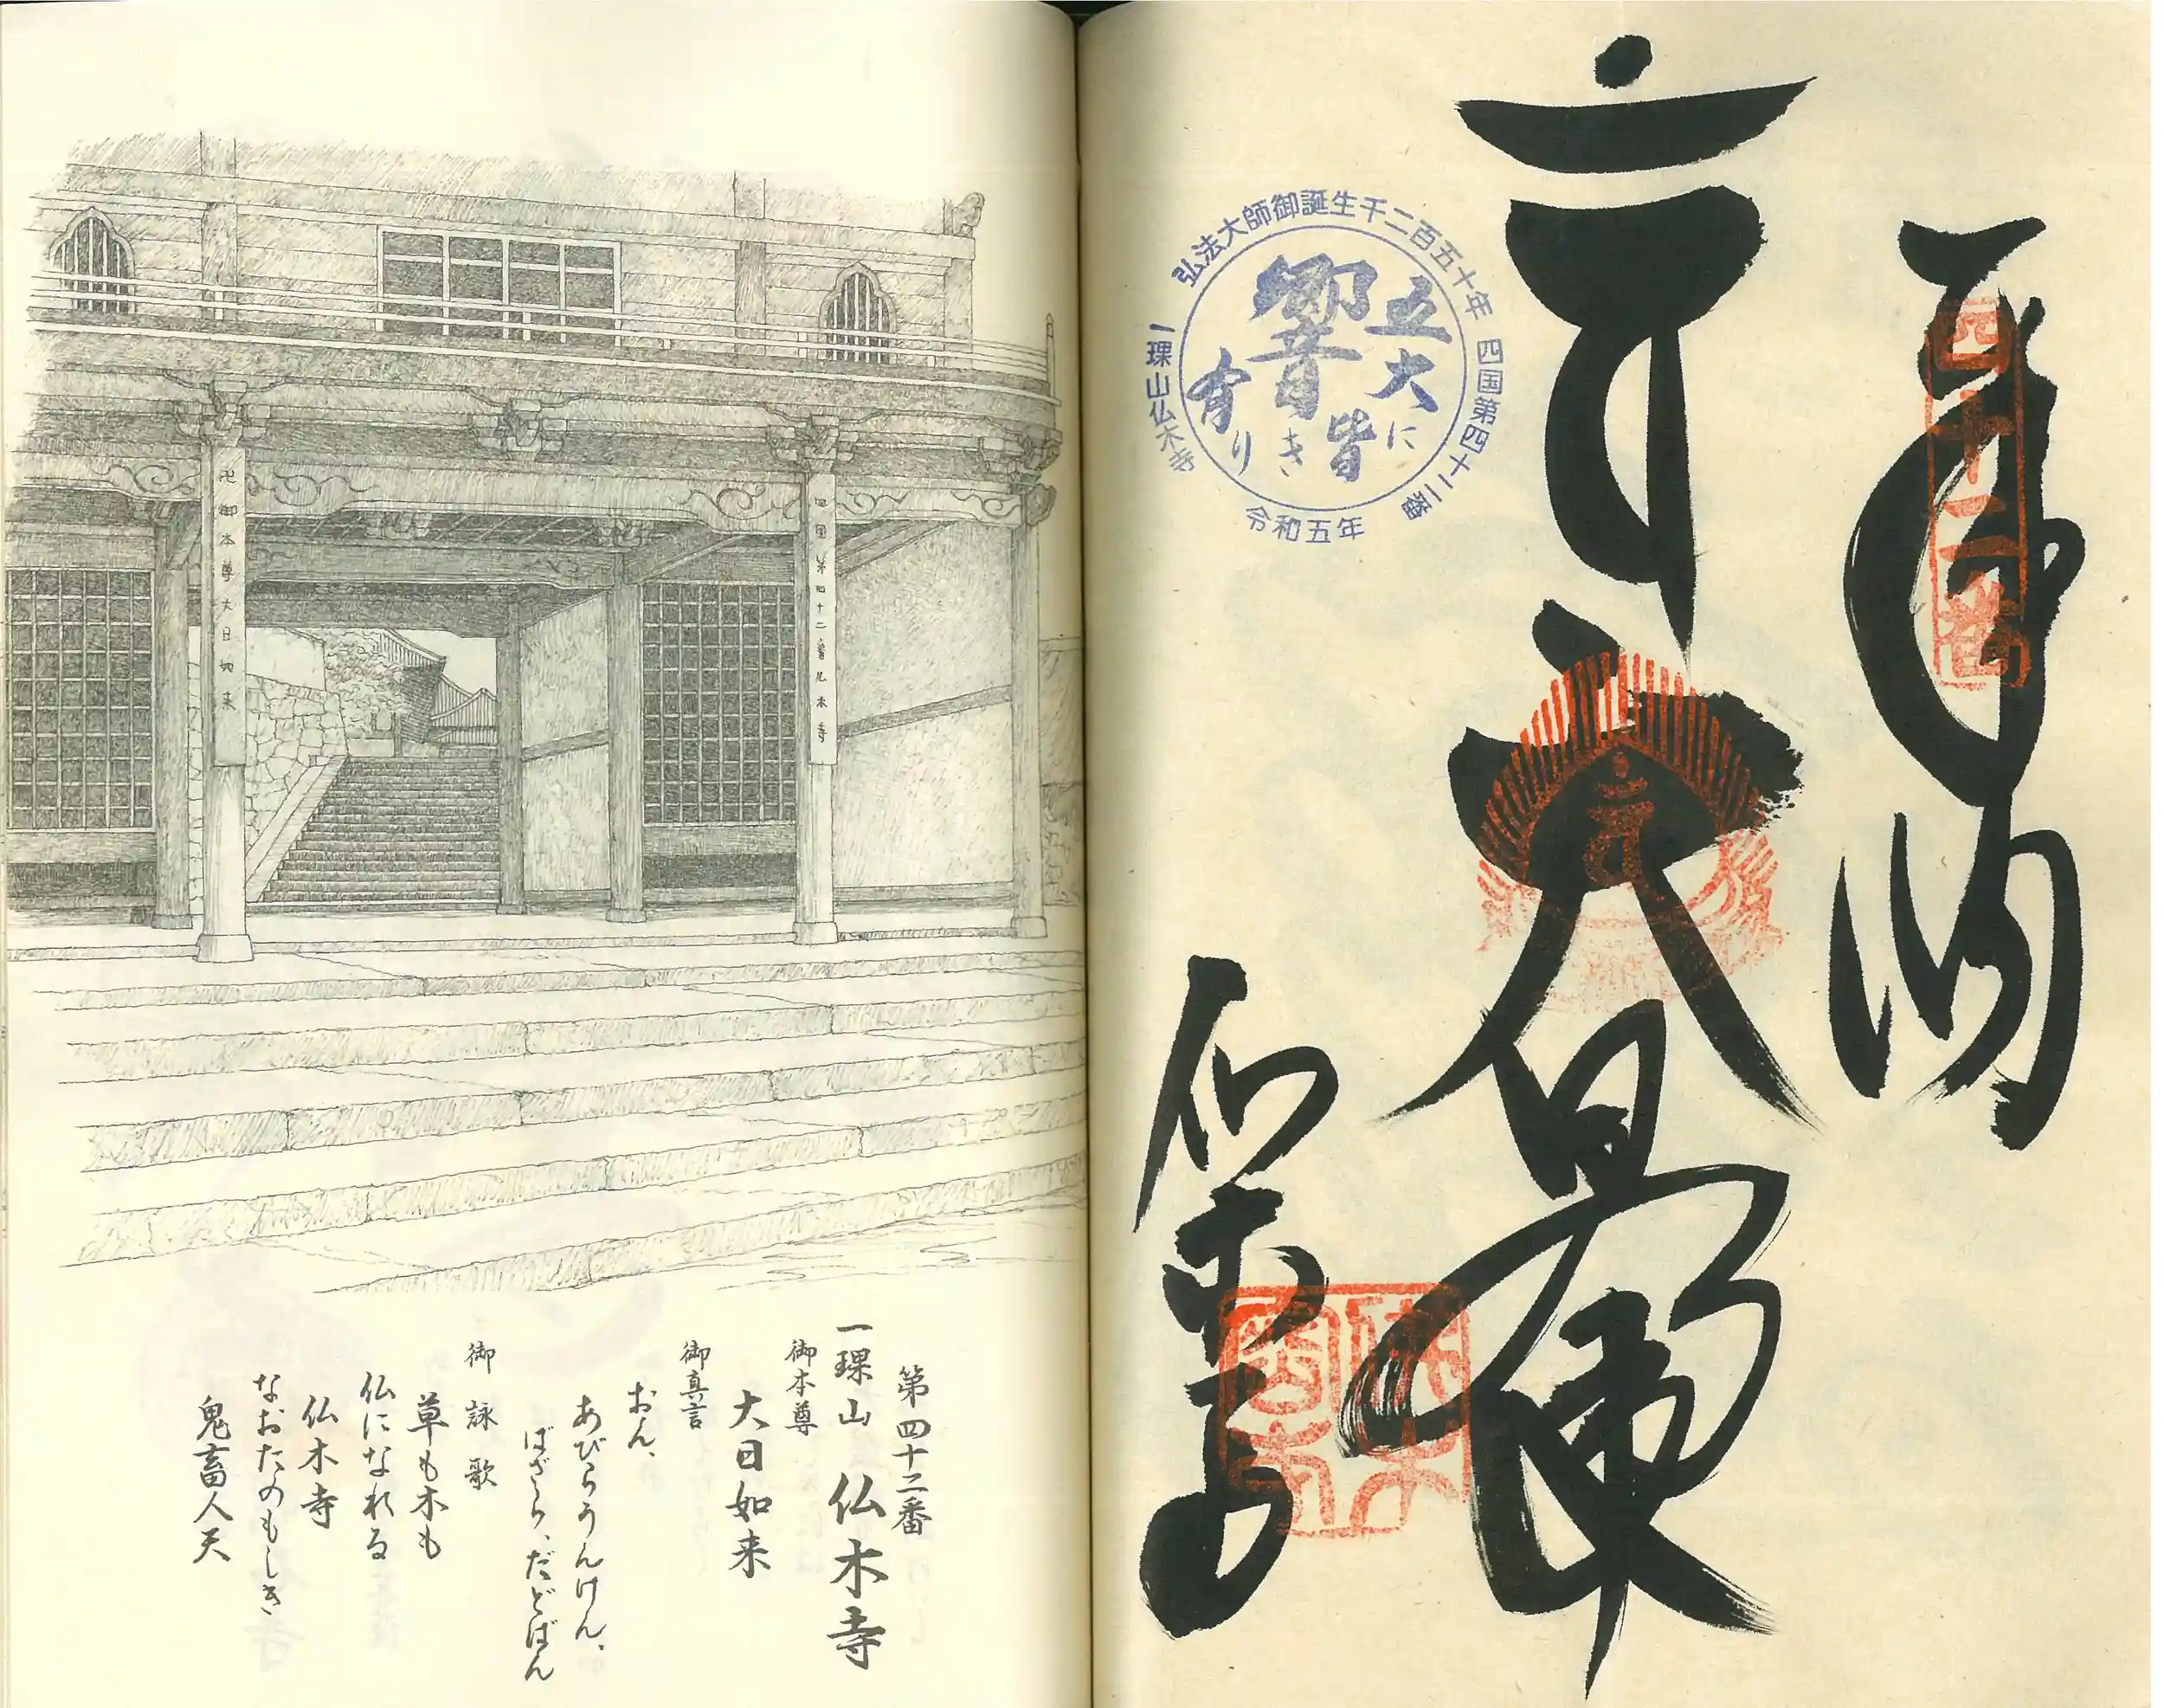 奉納
四十二番
大日如来
仏木寺
弘法大師御誕生千二百五十年
四国第四十二番
一𤦲山仏木寺
令和五年
五大に
皆
響き
有り
四国第四十二番仏木寺
卍御本尊大日如来
第四十二番
一𤦲山 仏木寺
御本尊
大日如来
御真言
おん、
あびらうんけん、
ばざら、だどばん
御詠歌
草も木も
仏になれる
仏木寺
なおたのもしき
鬼畜人天